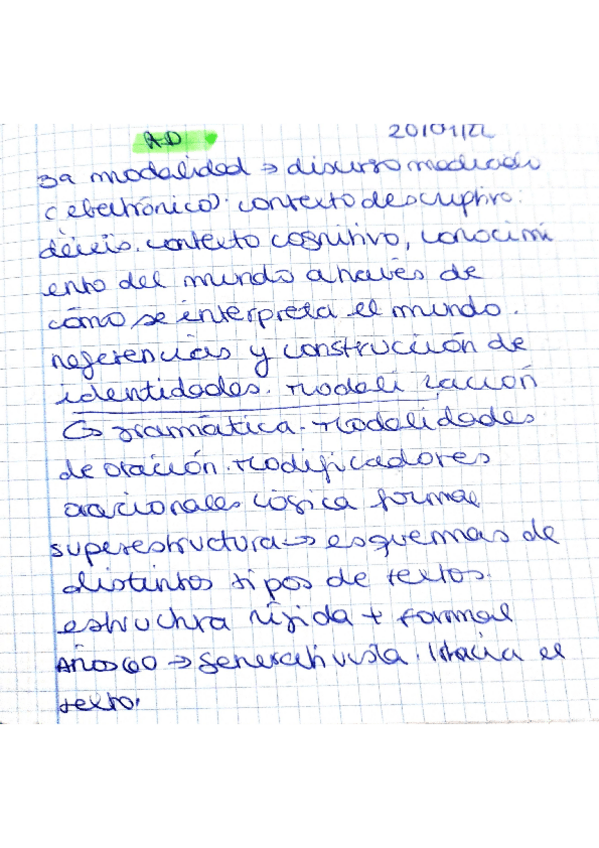 AD 20/01/22
3a modalidad → discurso mediación
(electrónico). contexto descriptivo:
déixis. contexto cognitivo, conocimi
ento del mundo a través de
cómo se interpreta el mundo.
referencias y construcción de
identidades. Modalización
↳ gramática. Modalidades
de oración. Modificadores
oracionales lógica formal
superestructura → esquemas de
distintos tipos de textos.
estructura rígida + formal
Años 60 → generativista. Hacia el
texto.